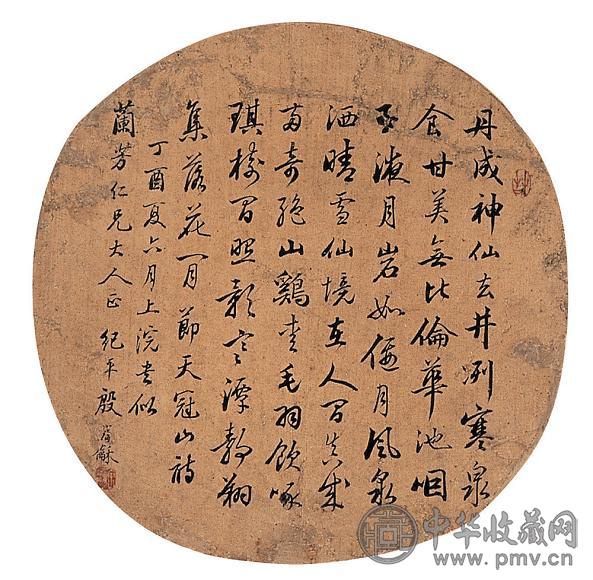 丹成神仙去井冽寒泉
食甘美無比倫華池咽
玉液月岩如偃月風泉
洒晴雪仙境在人間真成
兩奇絶山鷄愛毛羽飲啄
琪樹間照影寒潭靜翔
集落花間節天冠山詩
丁酉夏六月上浣書似
蘭芳仁兄大人正 紀平殷龢
中华收藏网
www.pmv.cn